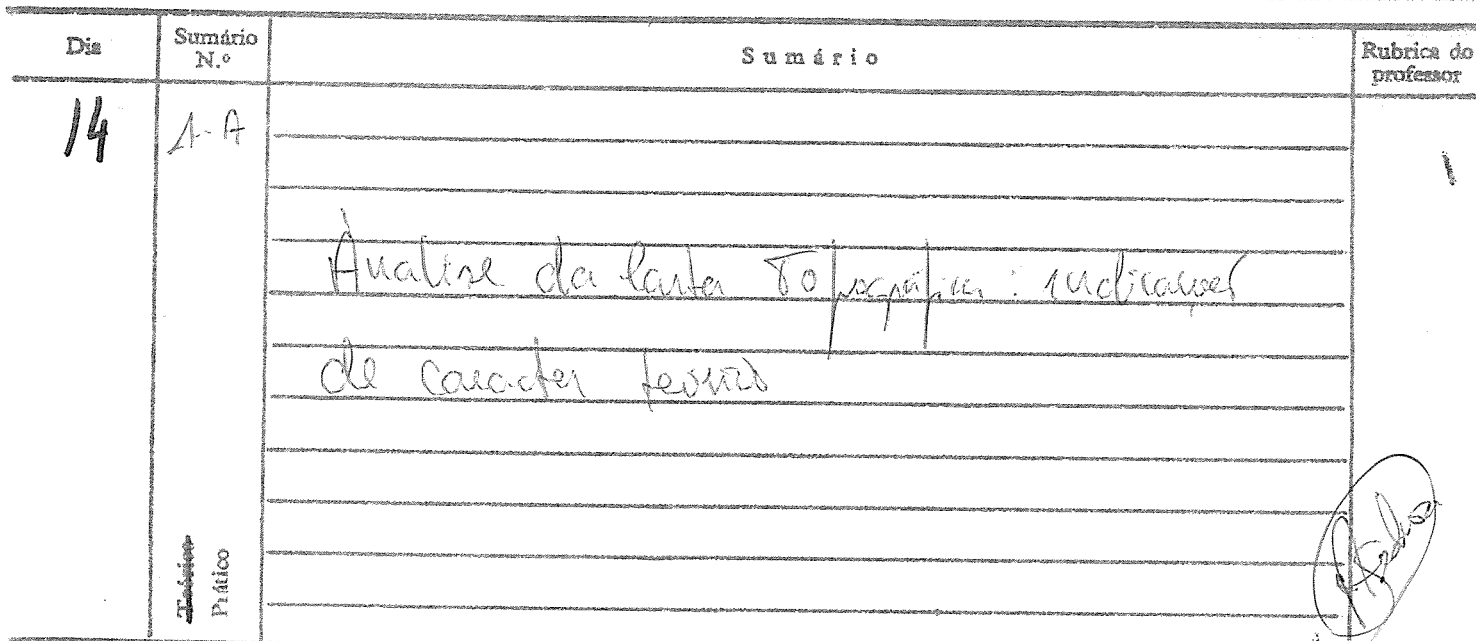 Dia Sumário N.º Sumário Rubrica do professor
14 1-A
Análise da Carta Topográfica: indicações
de caracter teórico
Teórico
Prático